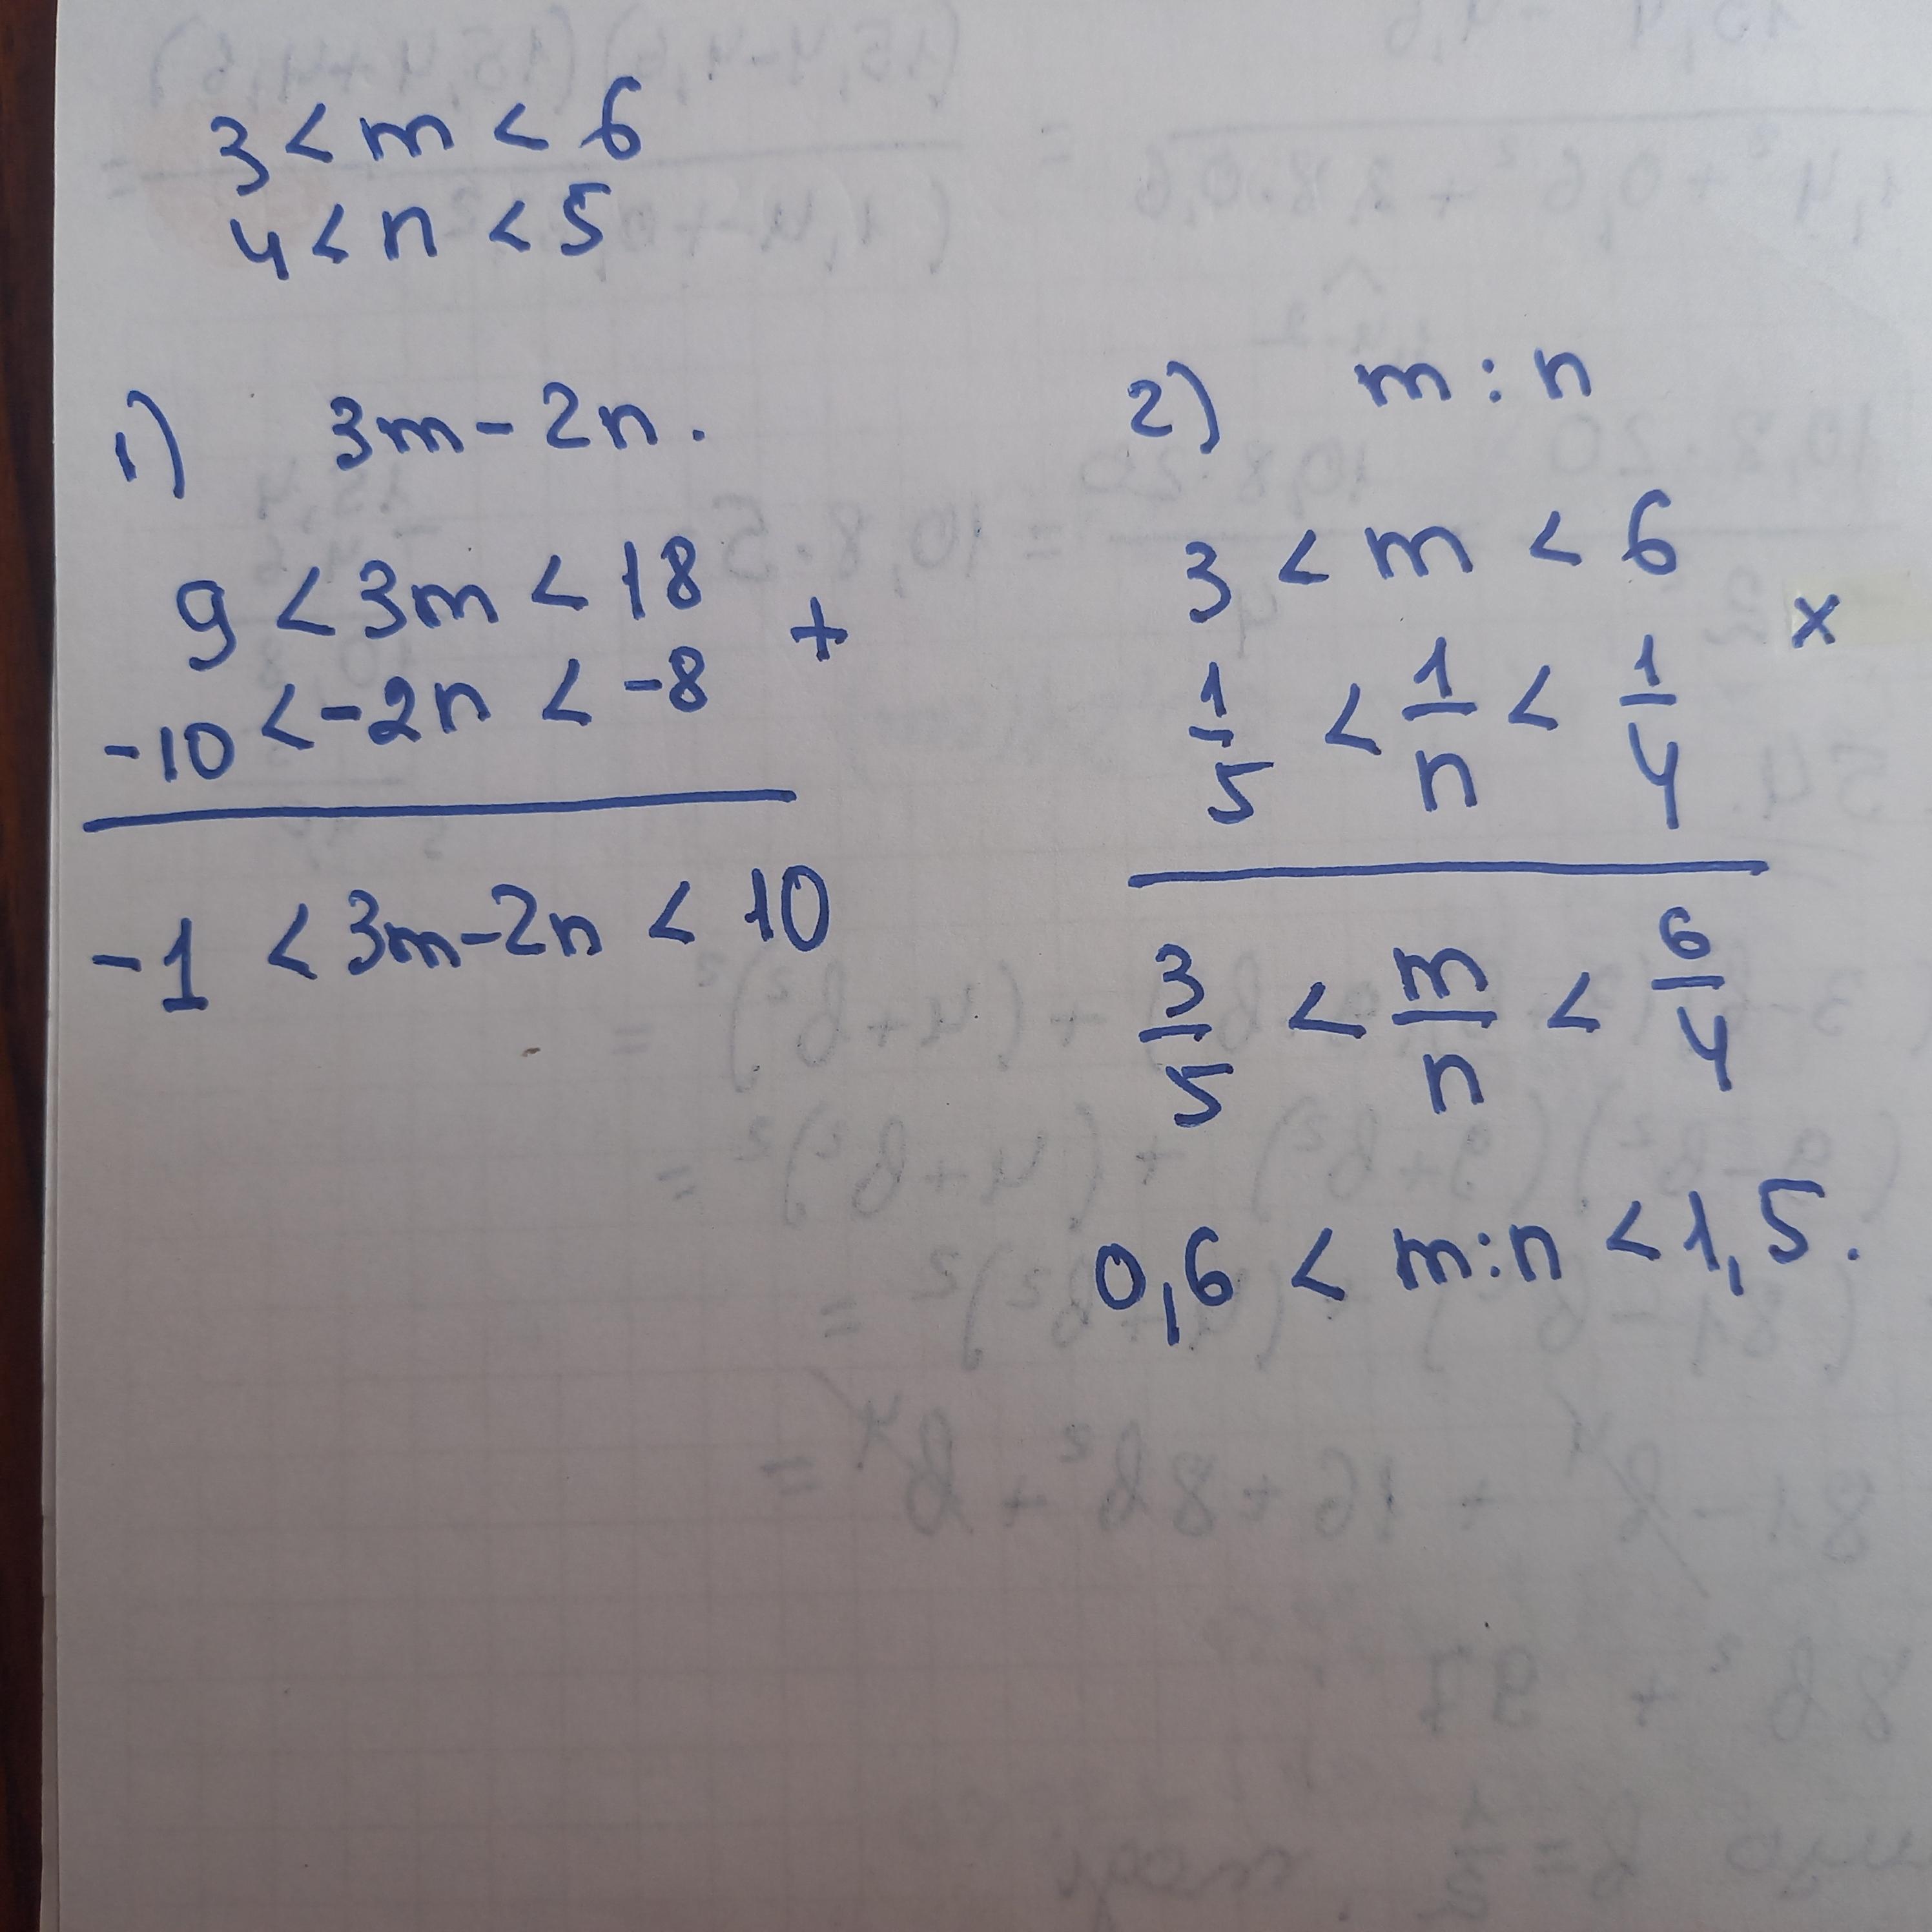 3 < m < 6
4 < n < 5
1) 3m - 2n.
9 < 3m < 18
+
-10 < -2n < -8
-1 < 3m-2n < 10
2) m : n
3 < m < 6
x
1/5 < 1/n < 1/4
3/5 < m/n < 6/4
0,6 < m:n < 1,5.